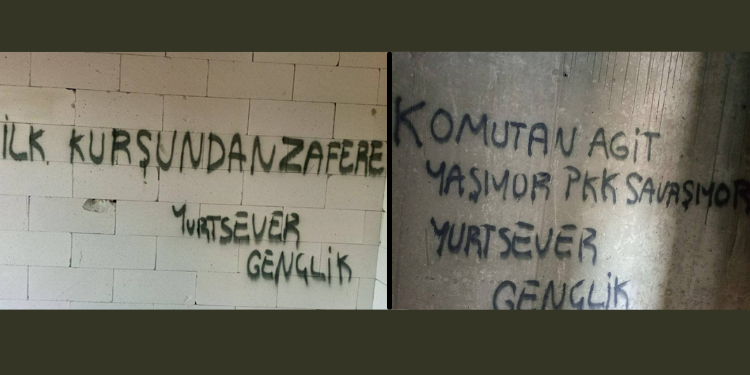 İLK KURŞUNDAN ZAFERE
YURTSEVER
GENÇLİK
KOMUTAN AGİT
YAŞIYOR PKK SAVAŞIYOR
YURTSEVER
GENÇLİK